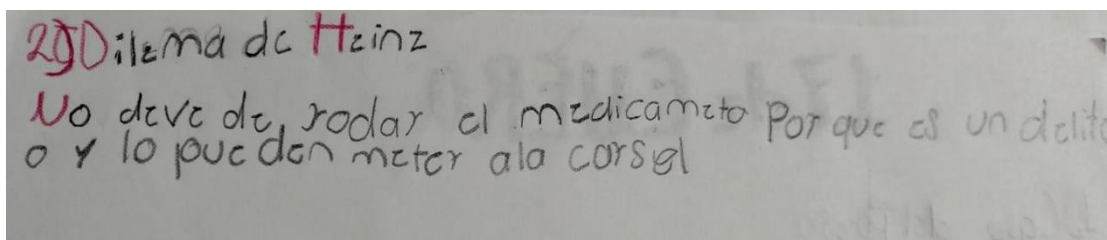 2g Dilema de Heinz
No deve de, rodar el medicameto Por que es un delito
o y lo pueden meter ala corsel